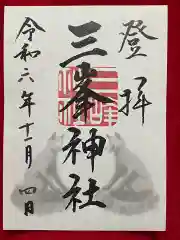 登拝
三峯神社
令和六年十一月四日